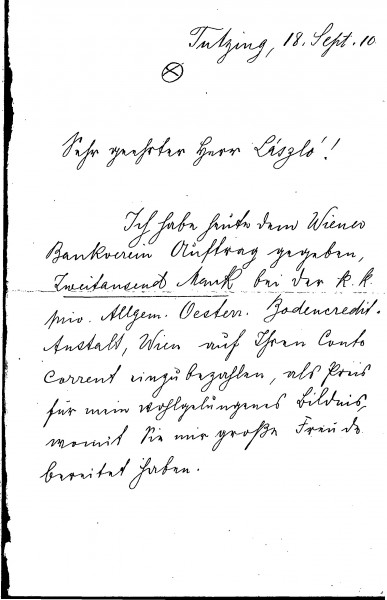 Tutzing, 18. Sept. 10
Sehr geehrter Herr László!
Ich habe heute dem Wiener
Bankverein Auftrag gegeben,
Zweitausend Mark bei der k. k.
priv. Allgem. Oesterr. Bodencredit-
Anstalt, Wien auf Ihren Conto
Corrent einzubezahlen, als Preis
für mein wohlgelungenes Bildnis,
womit Sie mir große Freude
bereitet haben.